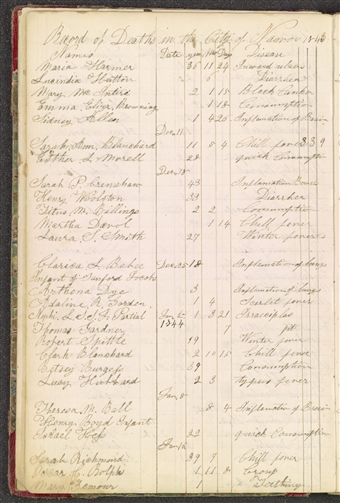 Record of Deaths in the City of Nauvoo 1843
Names Date years Mo Day Disease
Maria Harmer 26 11 24 Inward ulcers
Lucindia Hatton 6 Diarrhea
Mary Mc Intire 2 1 15 Black Canker
Emma Eliza Browning 1 18 Consumption
Sidney Allen 1 4 20 Inflamation of Brain
Dec 11
Sarah Ann Blanchard 11 5 4 Chill fever 339
Esther L Morell 28 quick Consumption
Dec 18
Sarah P. Crenshaw 43 Inflamation Bone
Henry Woolston 33 Diarrhea
Titus M. Billings 2 2 Consumption
Martha 1 14 Chill fever
Laura S. Smith 27 Winter fever
Clarica L Dec 25 18 Inflamation of lungs
Infant of Sanford Jacobs
Anthona Dye 3 Inflamation of lungs
Adaline R. Gordon 1 4 Scarlet fever
Jan 1 3 21
1844
Thomas Gardner 7 fits
Robert Spittle 19 Winter fever
Clark Blanchard 2 10 15 Chill fever
Betsey Burges 39 Consumption
Lucy Hubbard 2 3 typus fever
Jan 8
M. Ball 8 4 Inflamation of Brain
Henry Boyd Infant
Israel 22 quick Consumption
Jan 15
Sarah Richmond 39 3 Chill fever
1 11 8 Croup
Mary 1 Teething